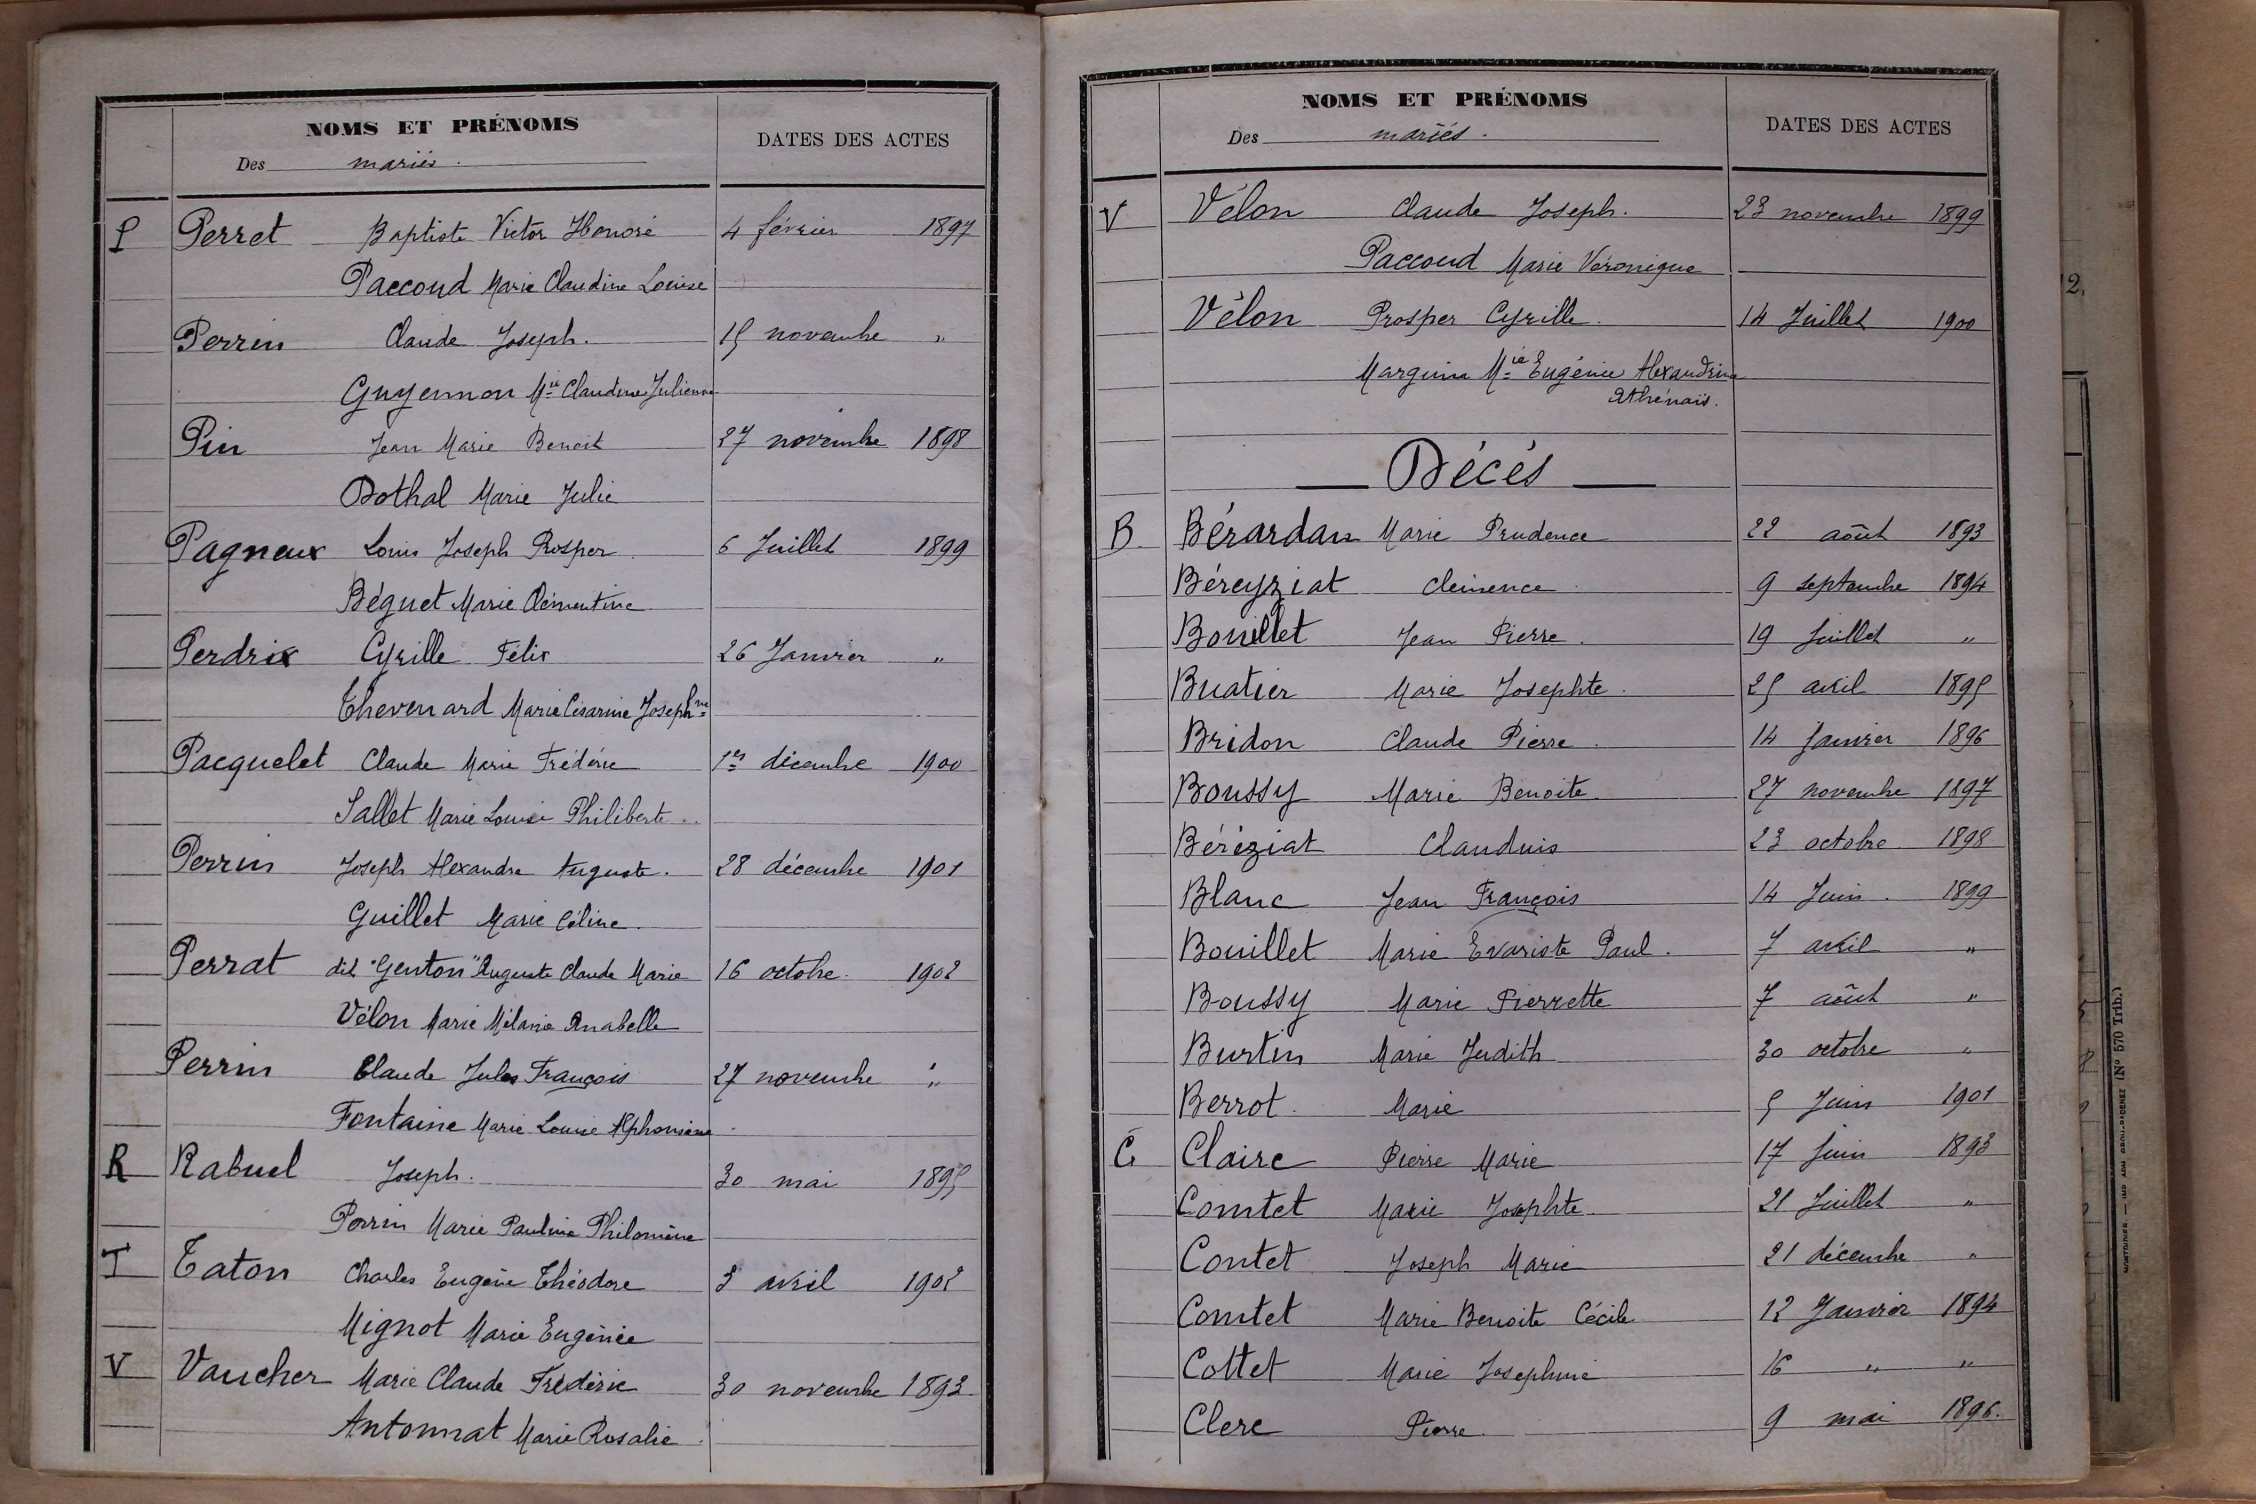 NOMS ET PRÉNOMS
Des mariés.
DATES DES ACTES
P Perret Baptiste Victor Honoré 4 février 1897
Paccoud Marie Claudine Louise
Perrin Claude Joseph. 15 novembre "
Guyennon Mie Claudine Julienne
Pin Jean Marie Benoit 27 novembre 1898
Dothal Marie Julie
Pagneux Louis Joseph Prosper 6 Juillet 1899
Béguet Marie Clémentine
Perdrix Cyrille Félix 26 Janvier "
Thevenard Marie Césarine Josephne
Pacquelet Claude Marie Frédéric 1er décembre 1900
Sallet Marie Louise Philiberte
Perrin Joseph Alexandre Auguste. 28 décembre 1901
Guillet Marie Céline.
Perrat dit "Genton" Auguste Claude Marie 16 octobre. 1902
Vélon Marie Mélanie Anabelle
Perrin Claude Jules François 27 novembre "
Fontaine Marie Louise Alphonsine
R Rabuel Joseph. 30 mai 1895
Perrin Marie Pauline Philomène
T Taton Charles Eugène Théodore 3 avril 1902
Mignot Marie Eugénie
V Vaucher Marie Claude Frédéric 30 novembre 1893
Antonnat Marie Rosalie
NOMS ET PRÉNOMS
Des mariés.
DATES DES ACTES
V Vélon Claude Joseph. 23 novembre 1899
Paccoud Marie Véronique
Vélon Prosper Cyrille 14 Juillet 1900
Marguin Mie Eugénie Alexandrine
Athénaïs.
Décés
B Bérardan Marie Prudence 22 août 1893
Béreyziat Clémence 9 septembre 1894
Bouillet Jean Pierre. 19 Juillet "
Buatier Marie Josephte. 25 avril 1895
Bridon Claude Pierre. 14 Janvier 1896
Boussy Marie Benoite 27 novembre 1897
Béréziat Claudius 23 octobre 1898
Blanc Jean François 14 Juin. 1899
Bouillet Marie Evariste Paul. 7 avril "
Boussy Marie Pierrette 7 août "
Burtin Marie Judith 30 octobre "
Berrot Marie 5 Juin 1901
C Claire Pierre Marie 17 Juin 1893
Comtet Marie Josephte 21 Juillet "
Contet Joseph Marie 21 décembre "
Comtet Marie Benoite Cécile 12 Janvier 1894
Cottet Marie Josephine 16 " "
Clerc Pierre. 9 mai 1896.
(No 570 Trib.)